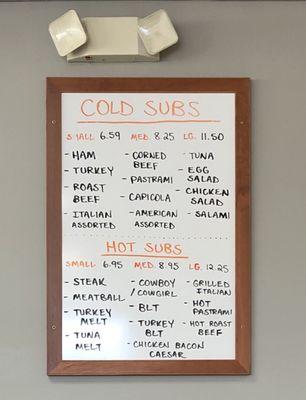 COLD SUBS
SMALL 6.59 MED. 8.25 LG. 11.50
- HAM
- TURKEY
- ROAST
BEEF
- ITALIAN
ASSORTED
- CORNED
BEEF
- PASTRAMI
- CAPICOLA
- AMERICAN
ASSORTED
- TUNA
- EGG
SALAD
- CHICKEN
SALAD
- SALAMI
HOT SUBS
SMALL 6.95 MED. 8.95 LG. 12.25
- STEAK
- MEATBALL
- TURKEY
MELT
- TUNA
MELT
- COWBOY
/COWGIRL
- BLT
- TURKEY
BLT
- CHICKEN BACON
CAESAR
- GRILLED
ITALIAN
- HOT
PASTRAMI
- HOT ROAST
BEEF